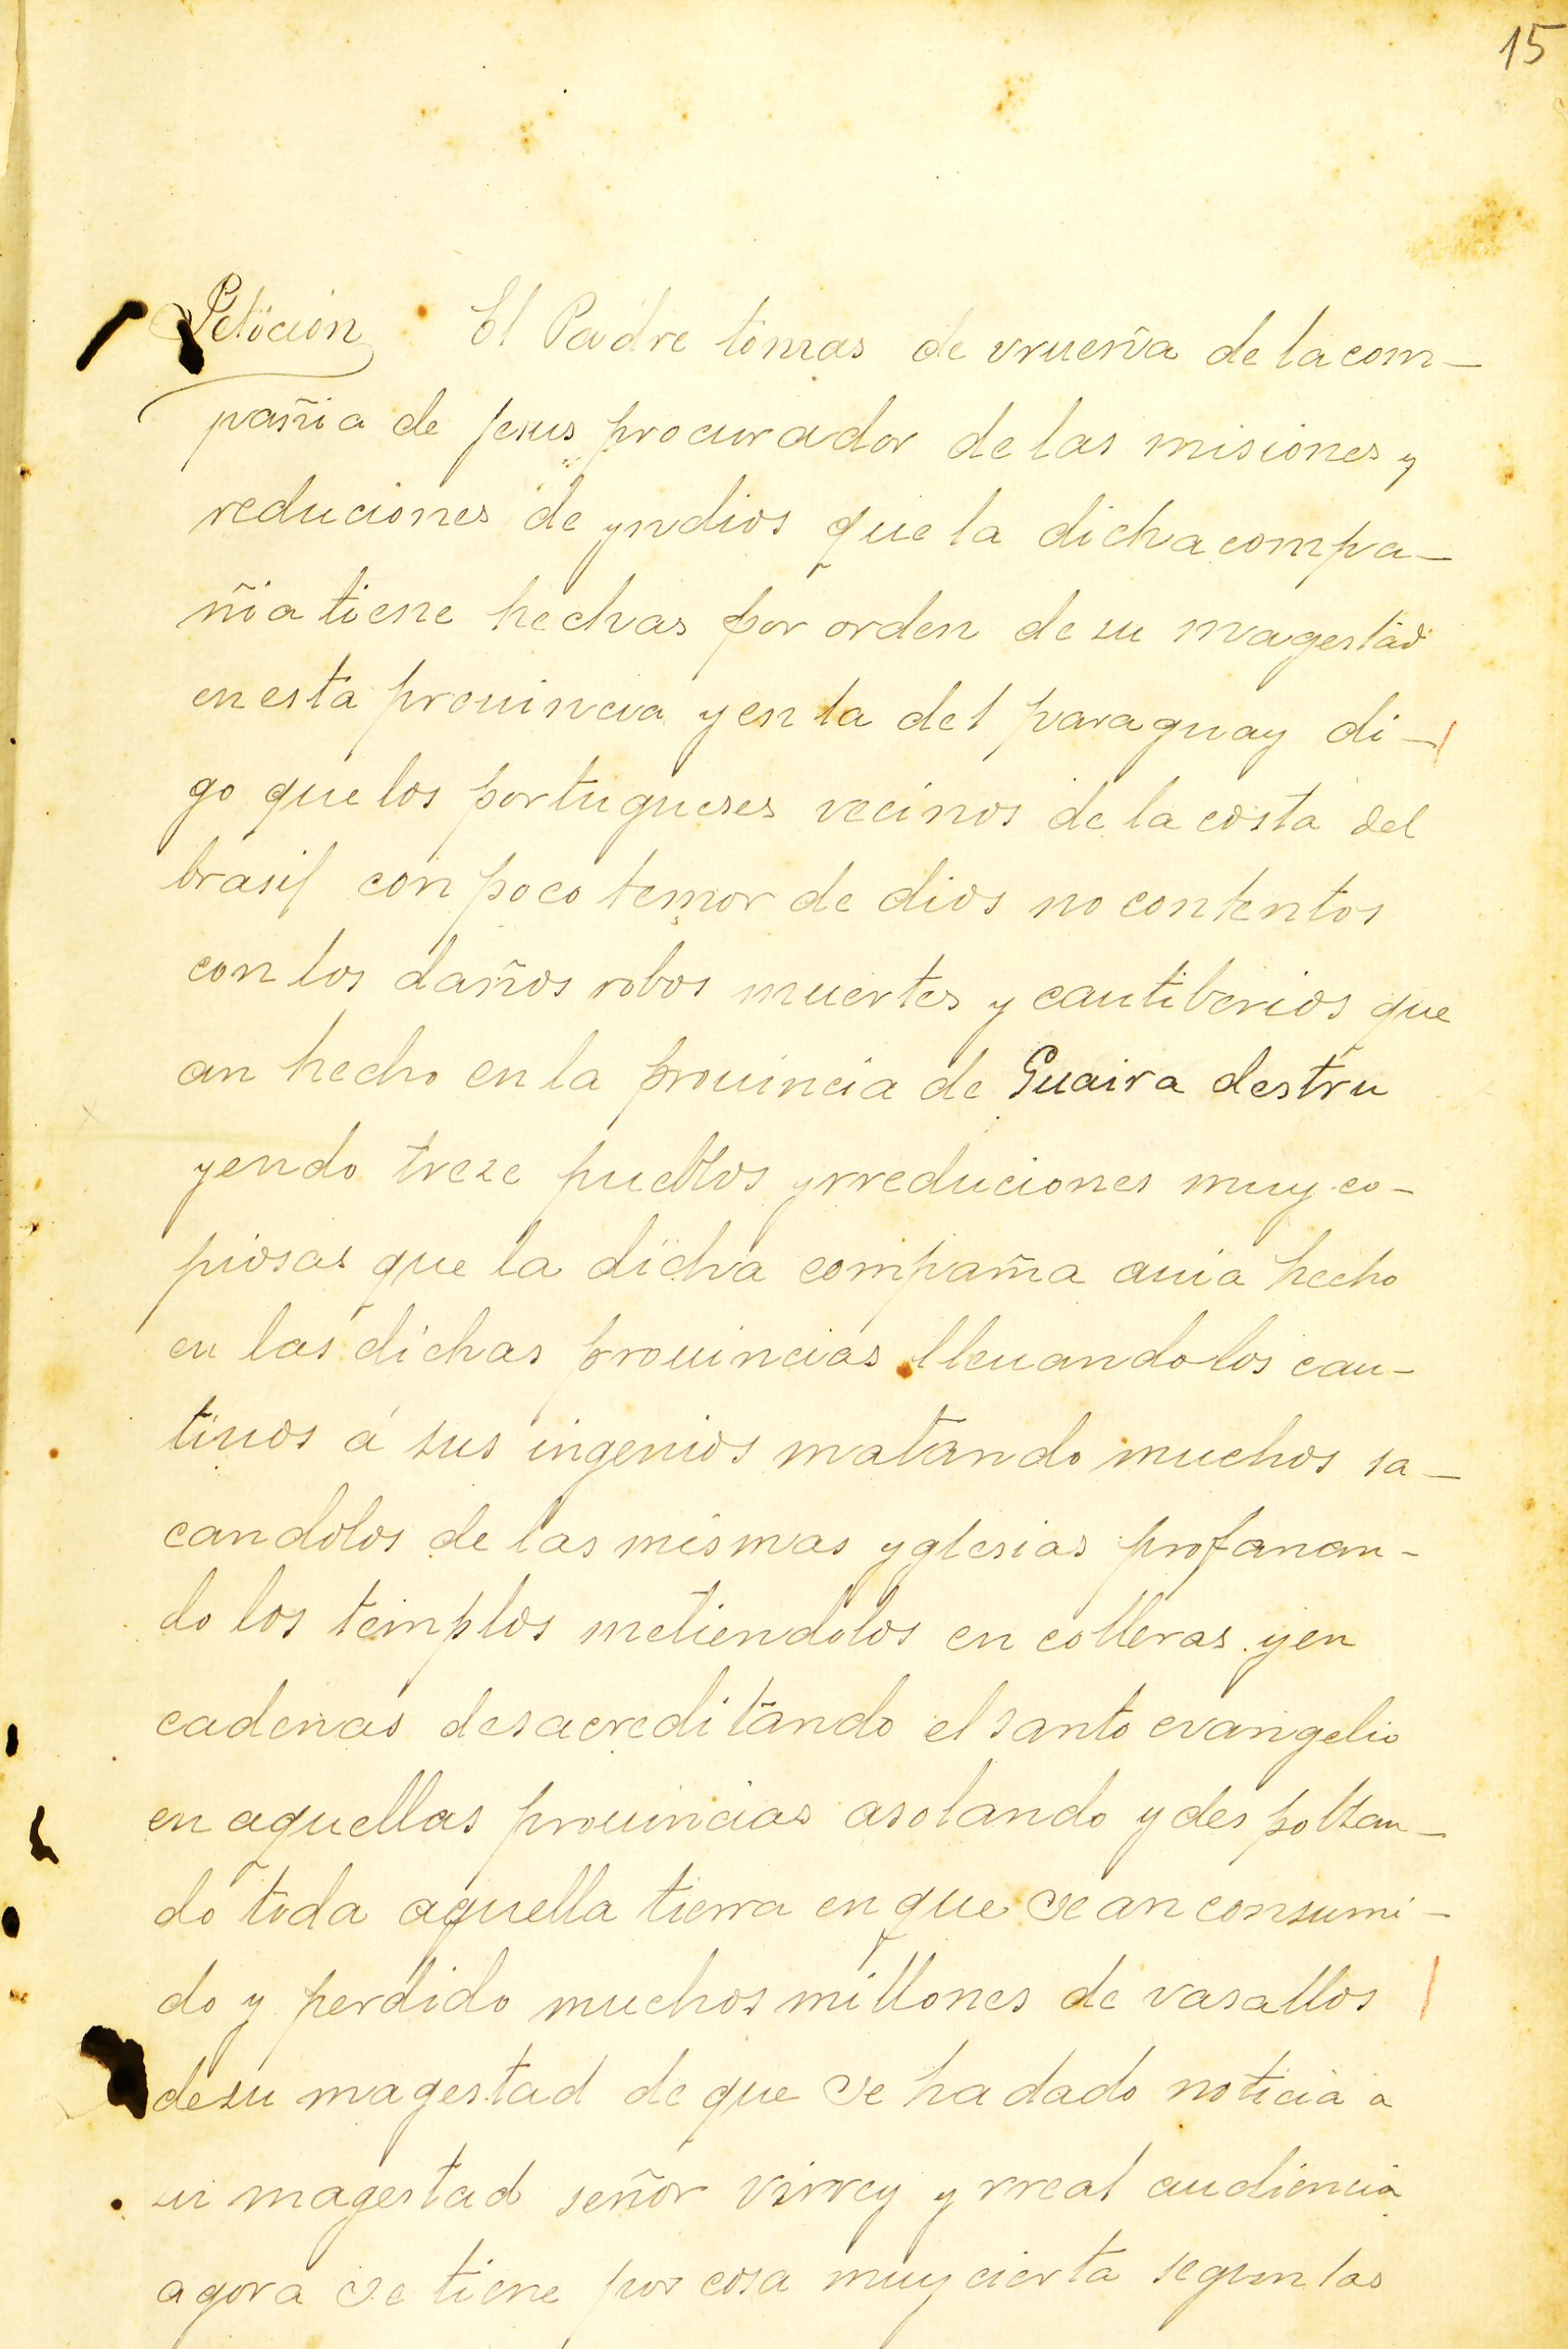 15
Peticion El Padre tomas de vrueña de la com-
pañia de jesus procurador de las misiones y
reduciones de yndios que la dicha compa-
ñia tiene hechas por orden de su magestad
en esta prouincia y en la del paraguay di-
go que los portugueses vecinos de la costa del
brasil con poco temor de dios no contentos
con los daños robos muertes y cautiberios que
an hecho en la prouincia de Guaira destru
yendo treze pueblos y rreduciones muy co-
piosas que la dicha compañia auia hecho
en las dichas prouincias lleuandolos cau-
tiuos á sus ingenios matando muchos sa-
candolos de las mismas yglesias profanan-
do los templos metiendolos en colleras y en
cadenas desacreditando el santo evangelio
en aquellas prouincias asolando y despoblan-
do toda aquella tierra en que se an consumi-
do y perdido muchos millones de vasallos
de su magestad de que se ha dado noticia a
su magestad señor virrey y rreal audiencia
agora se tiene por cosa muy cierta segun las